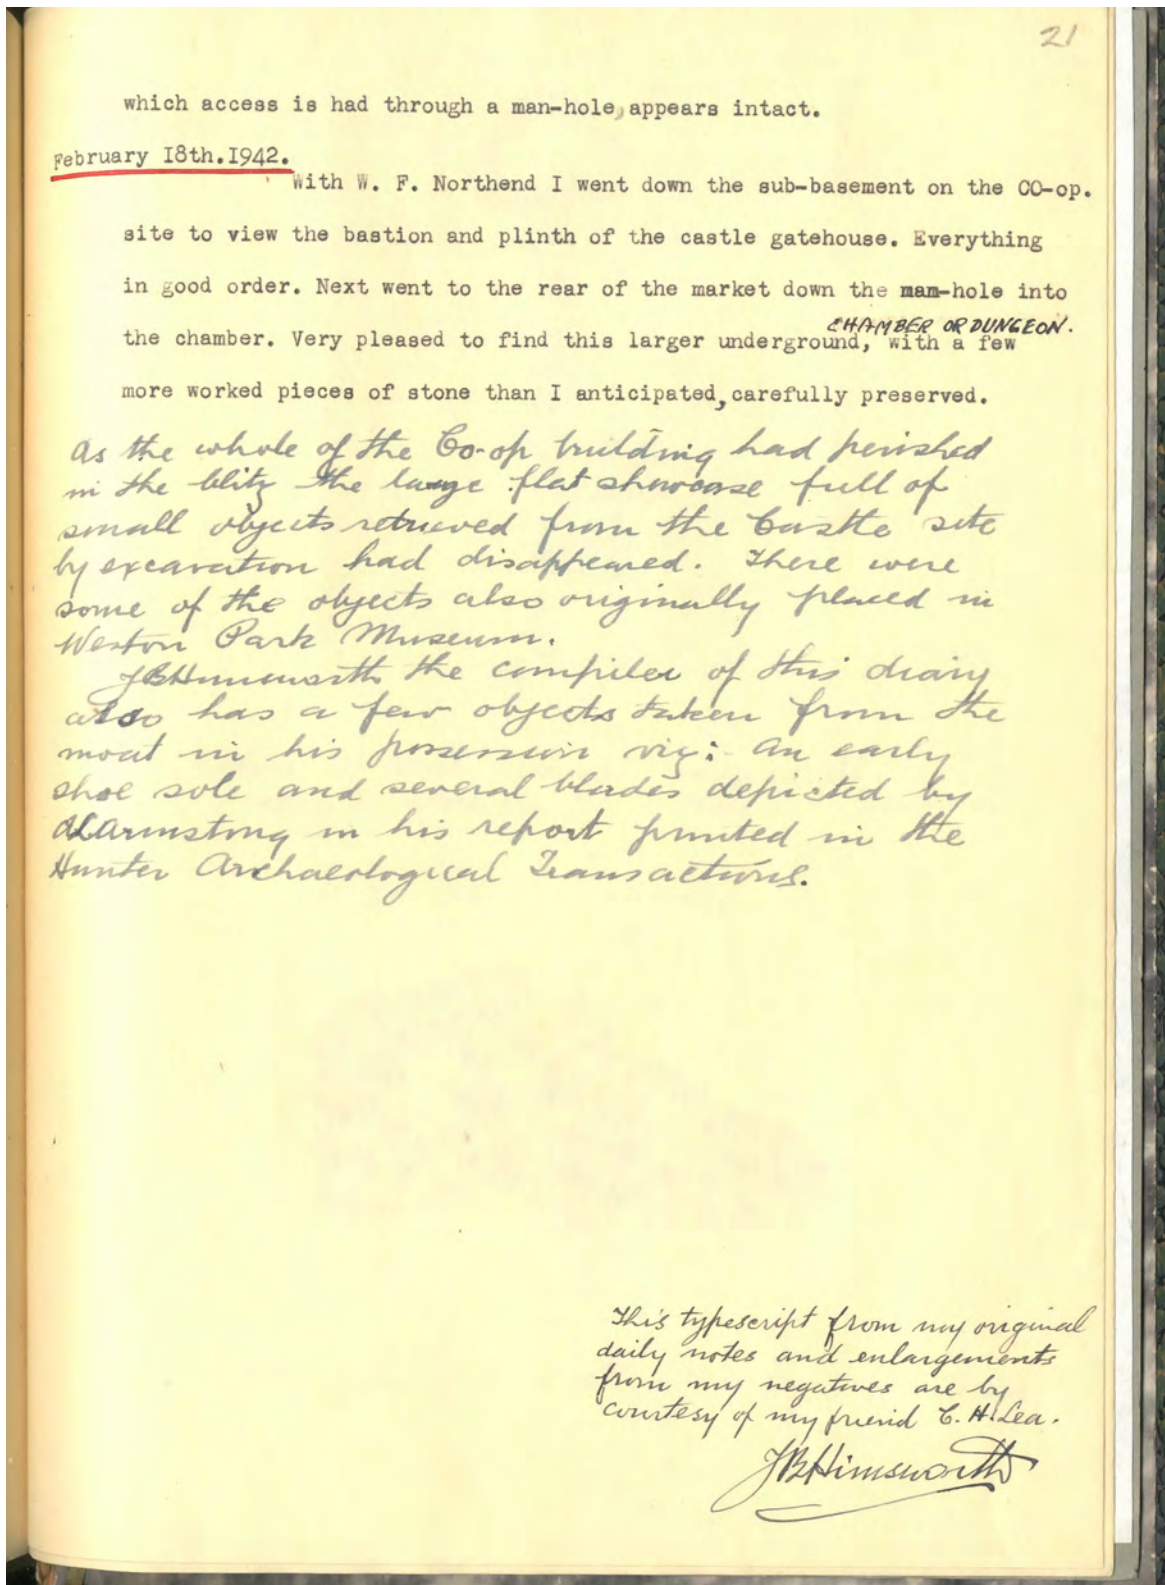 21
which access is had through a man-hole, appears intact.
February 18th.1942.
With W. F. Northend I went down the sub-basement on the CO-op.
site to view the bastion and plinth of the castle gatehouse. Everything
in good order. Next went to the rear of the market down the man-hole into
CHAMBER OR DUNGEON.
the chamber. Very pleased to find this larger underground, with a few
more worked pieces of stone than I anticipated, carefully preserved.
As the whole of the Co-op building had perished
in the blitz the large flat showcase full of
small objects retrieved from the Castle site
by excavation had disappeared. There were
some of the objects also originally placed in
Weston Park Museum.
JBHimsworth the compiler of this diary
also has a few objects taken from the
moat in his possession viz:- An early
shoe sole and several blades depicted by
ALArmstrong in his report printed in the
Hunter Archaeological Transactions.
This typescript from my original
daily notes and enlargements
from my negatives are by
courtesy of my friend C. H. Lea.
JBHimsworth